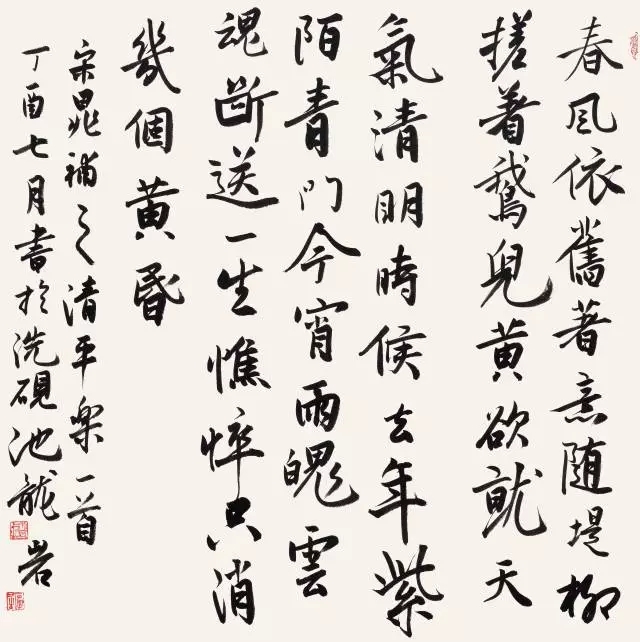 春風依舊著意随堤柳
搓著鵝兒黄欲就天
氣清明時候去年紫
陌青門今宵雨魄雲
魂斷送一生憔悴只消
幾個黄昏
宋晁補之清平樂一首
丁酉七月書於洗硯池龍岩